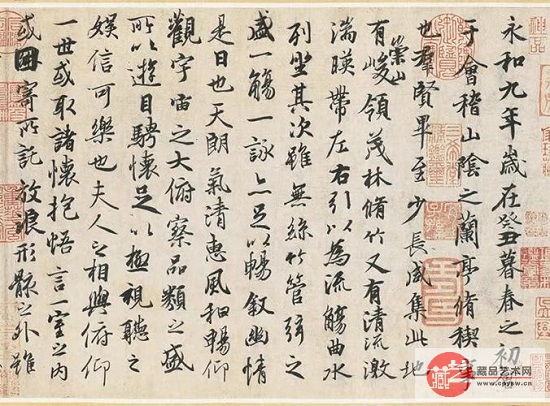 永和九年歲在癸丑暮春之初會
于會稽山陰之蘭亭脩稧事
也羣賢畢至少長咸集此地
有崇山峻領茂林脩竹又有清流激
湍暎帶左右引以為流觴曲水
列坐其次雖無絲竹管弦之
盛一觴一詠亦足以暢叙幽情
是日也天朗氣清惠風和暢仰
觀宇宙之大俯察品類之盛
所以遊目騁懷足以極視聽之
娛信可樂也夫人之相與俯仰
一世或取諸懷抱悟言一室之内
或因寄所託放浪形骸之外雖
藏品艺术网
www.cnysw.cn